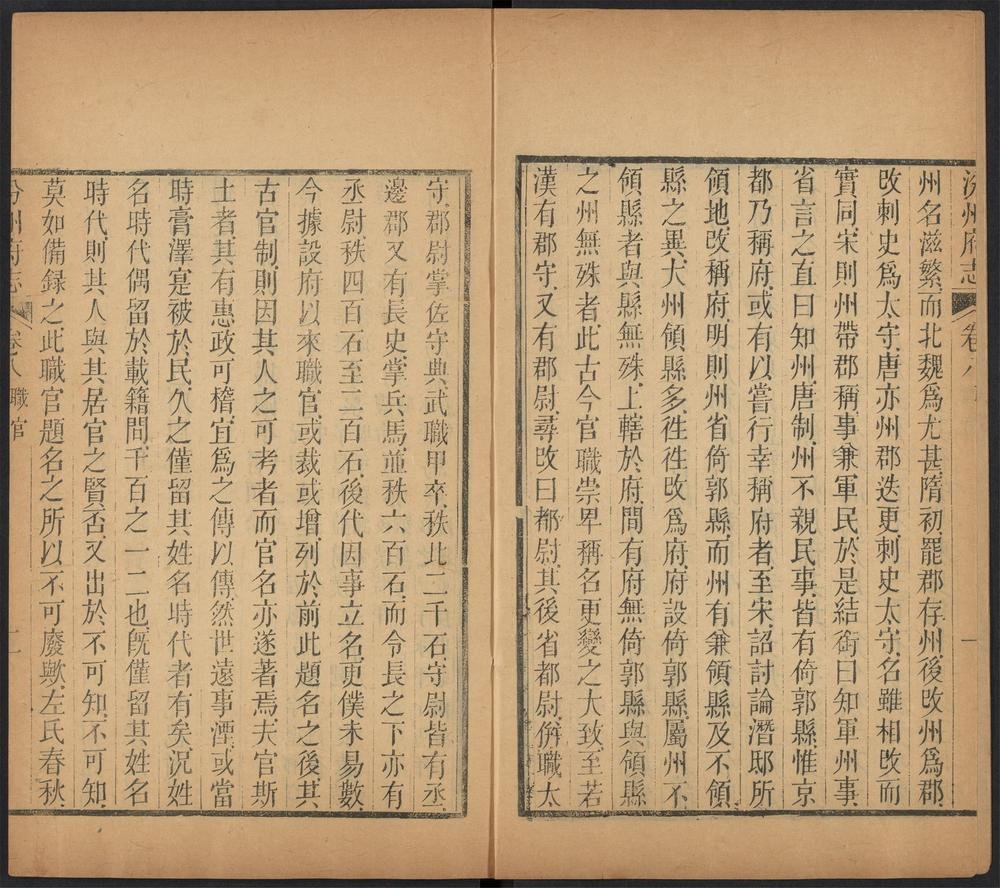 汾州府志 卷八 一
州名滋繁、而北魏爲尤甚、隋初罷郡存州、後改州爲郡、
改刺史爲太守、唐亦州郡迭更、刺史太守、名雖相改而
實同、宋則州帶郡稱、事兼軍民、於是結銜曰知軍州事、
省言之直曰知州、唐制、州不親民事、皆有倚郭縣、惟京
都乃稱府、或有以嘗行幸稱府者、至宋、詔討論潛邸所
領地、改稱府、明則州省倚郭縣、而州有兼領縣及不領
縣之異、大州領縣多、徃徃改爲府、府設倚郭縣、屬州不
領縣者與縣無殊、上轄於府、間有府無倚郭縣與領縣
之州無殊者、此古今官職崇卑稱名更變之大致、至若
漢有郡守、又有郡尉、尋改曰都尉、其後省都尉、併職太
守、郡尉掌佐守典武職甲卒、秩比二千石、守尉皆有丞、
邊郡又有長史、掌兵馬、並秩六百石、而令長之下亦有
丞尉秩四百石至二百石、後代因事立名、更僕未易數、
今據設府以來職官、或裁或增、列於前、此題名之後、其
古官制、則因其人之可考者而官名亦遂著焉、夫官斯
土者、其有惠政可稽、宜爲之傳以傳、然世遠事湮、或當
時膏澤寔被於民、久之僅留其姓名時代者有矣、況姓
名時代偶留於載籍間、千百之一二也、旣僅留其姓名
時代、則其人與其居官之賢否、又出於不可知、不可知、
莫如備録之、此職官題名之所以不可廢歟、左氏春秋
汾州府志 卷八 職官 二